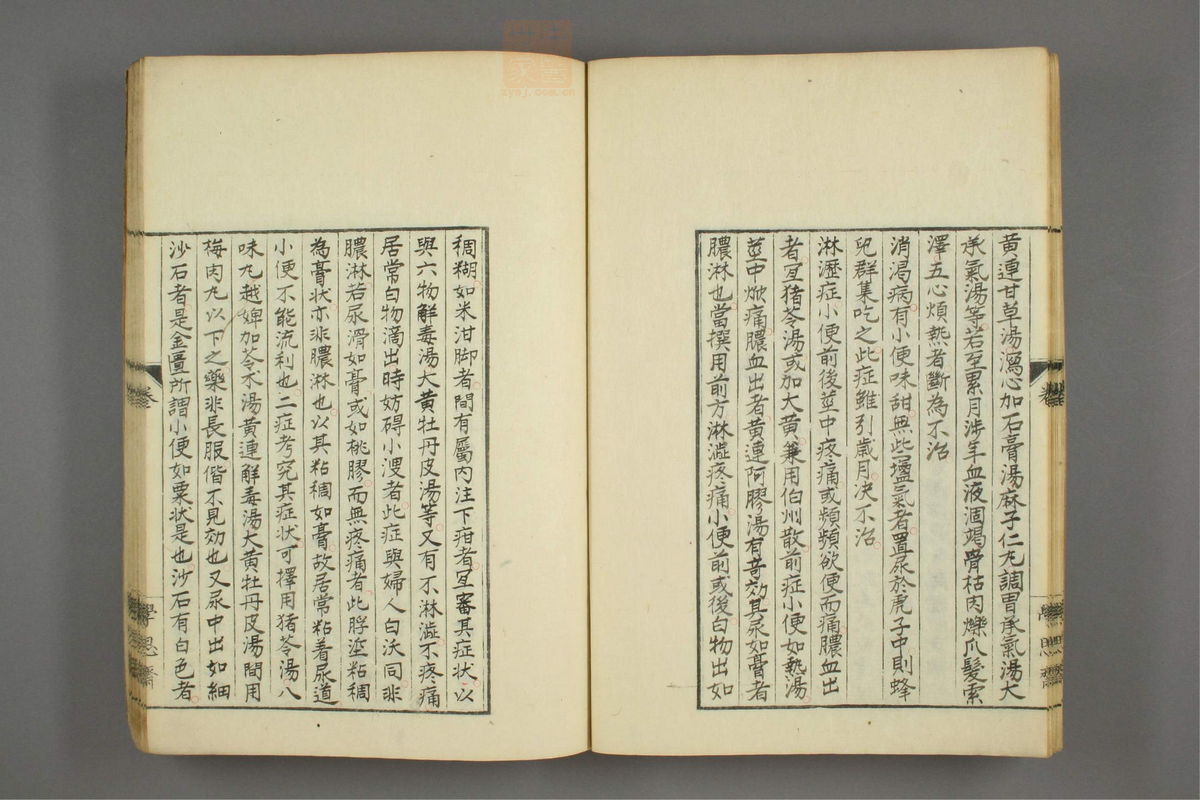 黃連甘草湯瀉心加石膏湯麻子仁丸調胃承氣湯大
承氣湯等若至累月涉年血液涸竭骨枯肉爍爪髮索
澤五心煩熱者斷為不治
消渴病有小便味甜無些塩氣者置尿於虎子中則蜂
兒群集吃之此症雖引歲月決不治
淋瀝症小便前後莖中疼痛或頻頻欲便而痛膿血出
者宜猪苓湯或加大黃兼用伯州散前症小便如熱湯
莖中焮痛膿血出者黃連阿膠湯有竒効其尿如膏者
膿淋也當撰用前方淋澁疼痛小便前或後白物出如
稠糊如米泔脚者間有屬內注下疳者宜審其症狀以
與六物觧毒湯大黃牡丹皮湯等又有不淋澁不疼痛
居常白物滴出時妨碍小溲者此症與婦人白沃同非
膿淋若尿滑如膏或如桃膠而無疼痛者此脬塗粘稠
為膏狀亦非膿淋也以其粘稠如膏故居常粘着尿道
小便不能流利也二症考究其症狀可擇用猪苓湯八
味丸越婢加苓朮湯黃連觧毒湯大黃牡丹皮湯間用
梅肉丸以下之藥非長服偕不見効也又尿中出如細
沙石者是金匱所謂小便如粟狀是也沙石有白色者
卷
學思齋
zysj.com.cn